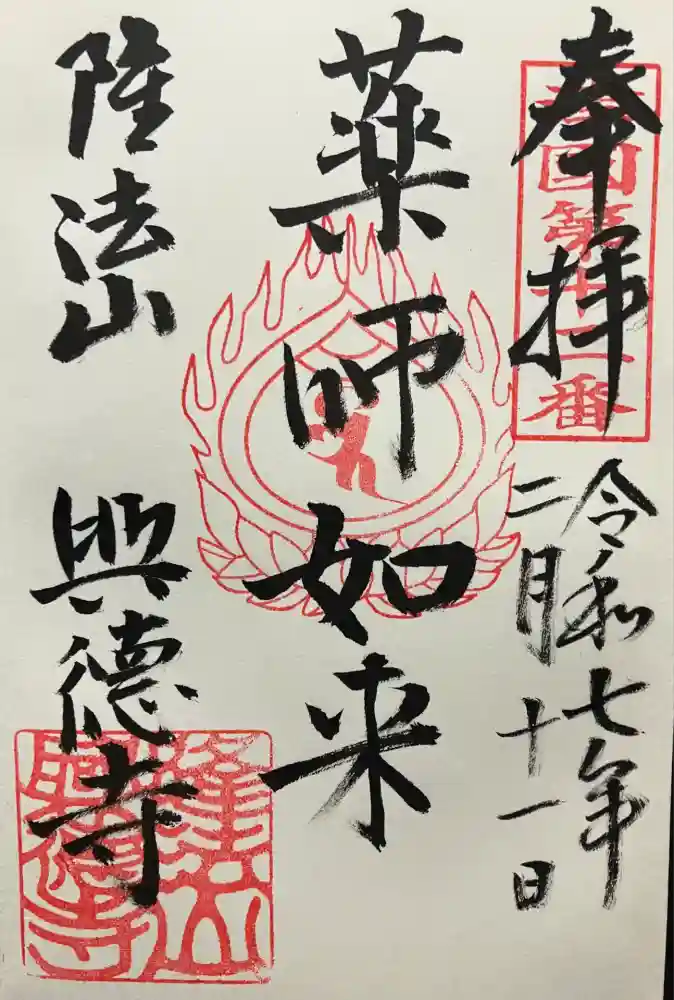 奉拝
國第十二番
令和七年
二月十一日
薬師如来
隆法山
興徳寺